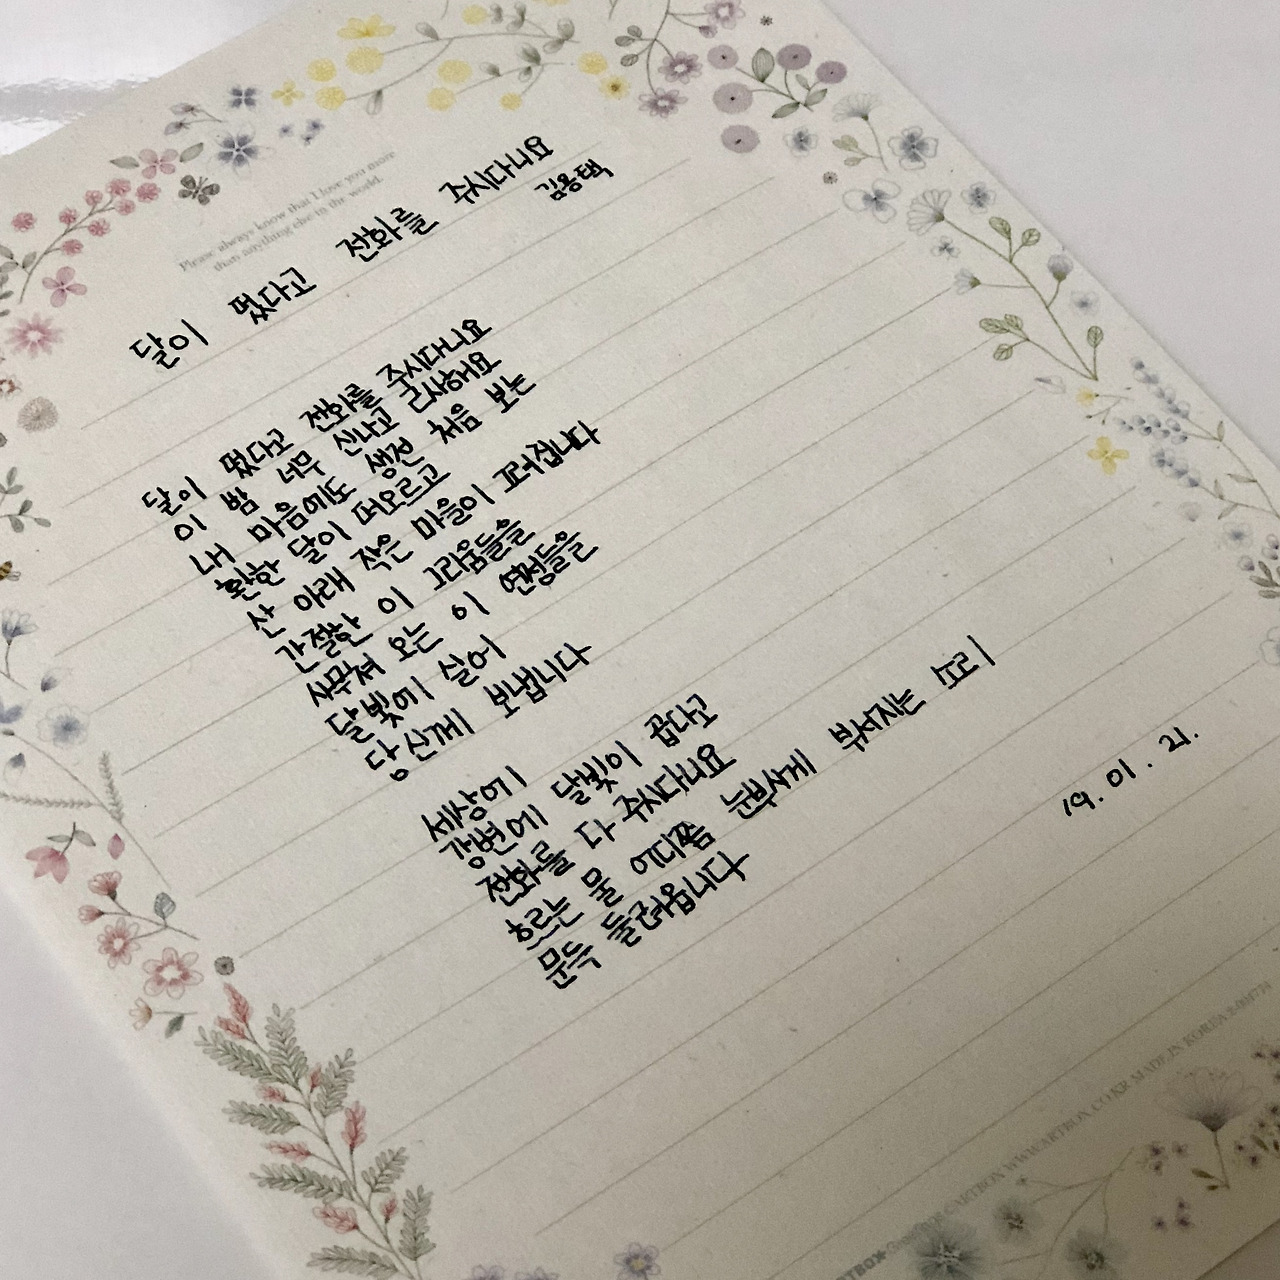 Please always know that I love you more
than anything else in the world.
달이 떴다고 전화를 주시다니요
김용택
달이 떴다고 전화를 주시다니요
이 밤 너무 신나고 근사해요
내 마음에도 생전 처음 보는
환한 달이 떠오르고
산 아래 작은 마을이 그려집니다
간절한 이 그리움들을
사무쳐 오는 이 연정들을
달빛에 실어
당신께 보냅니다
세상에!
강변에 달빛이 곱다고
전화를 다 주시다니요
흐르는 물 어디쯤 눈부시게 부서지는 소리
문득 들려옵니다
19. 01. 21.
ARTBOX WWW.ARTBOX.CO.KR MADE IN KOREA